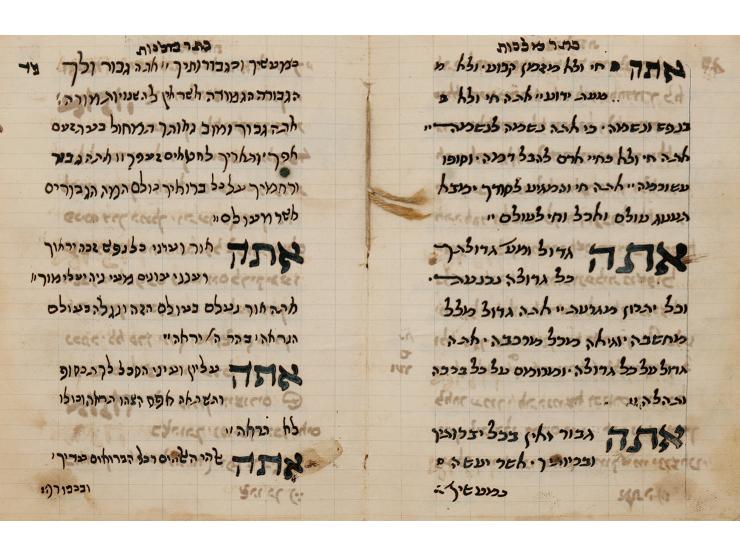 כתר מלכות
אתה חי ולא מזמן קבוע ולא מ
מעת ידוע" אתה חי ולא ב
בנפש ונשמה. כי אתה נשמה לנשמה"
אתה חי ולא כחיי אדם להבל דמה. וסופו
עש ורמה" אתה חי והמגיע לסודך ימצא
תענוג עולם ואכל וחי לעולם"
אתה גדול ומול גדולתך
כל גדולה נכנעת.
וכל יתרון מגרעת" אתה גדול מכל
מחשבה וגיאה מכל מרכבה. אתה
גדול על כל גדולה. ומרומם על כל ברכה
ותהלה
אתה גבור ואין בכל יצורותיך
ובריותיך. אשר יעשה
כמעשיך
כתר מלכות
מד
כמעשיך וכגבורותיך" אתה גבור ולך
הגבורה הגמורה אשר אין לה שנוי ותמורה
אתה גבור ומרוב גאותך תמחול בעת זעם
אפך. ותאריך לחטאים זעפך" אתה גבור
ורחמיך על כל ברואיך כולם המה הגבורים
אשר מעולם"
אתה אור ועיני כל נפש זכה יראוך
וענני עונים מעיניה יעלימוך"
אתה אור נעלם בעולם הזה ונגלה בעולם
הנראה בהר ה' יראה"
אתה עליון ועיני השכל לך תכסוף
ותשתאה אפס קצהו תראה וכולו
לא תראה"
אתה אלהי האלהים וכל הברואים עדיך
ובכבוד